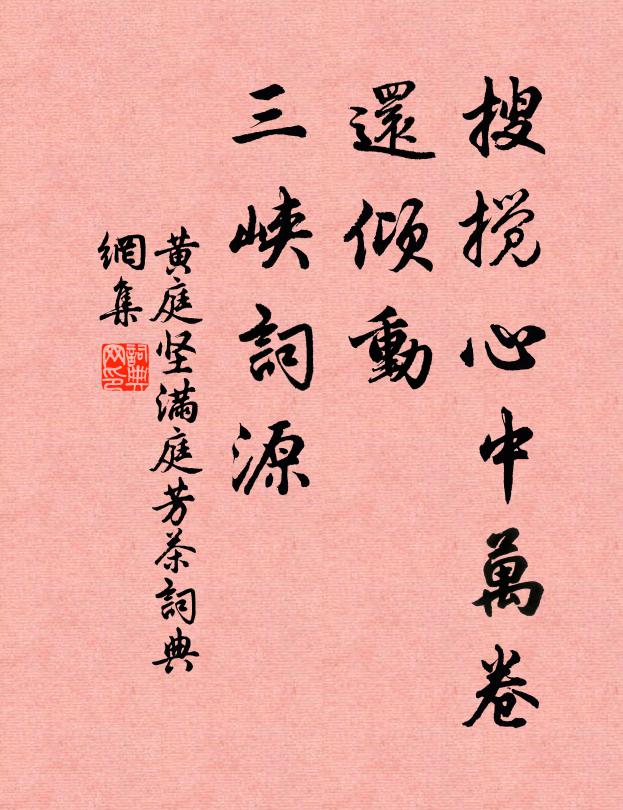 搜搅心中萬卷
還傾動
三峽詞源
黄庭坚满庭芳茶詞典
網集
詞典网印